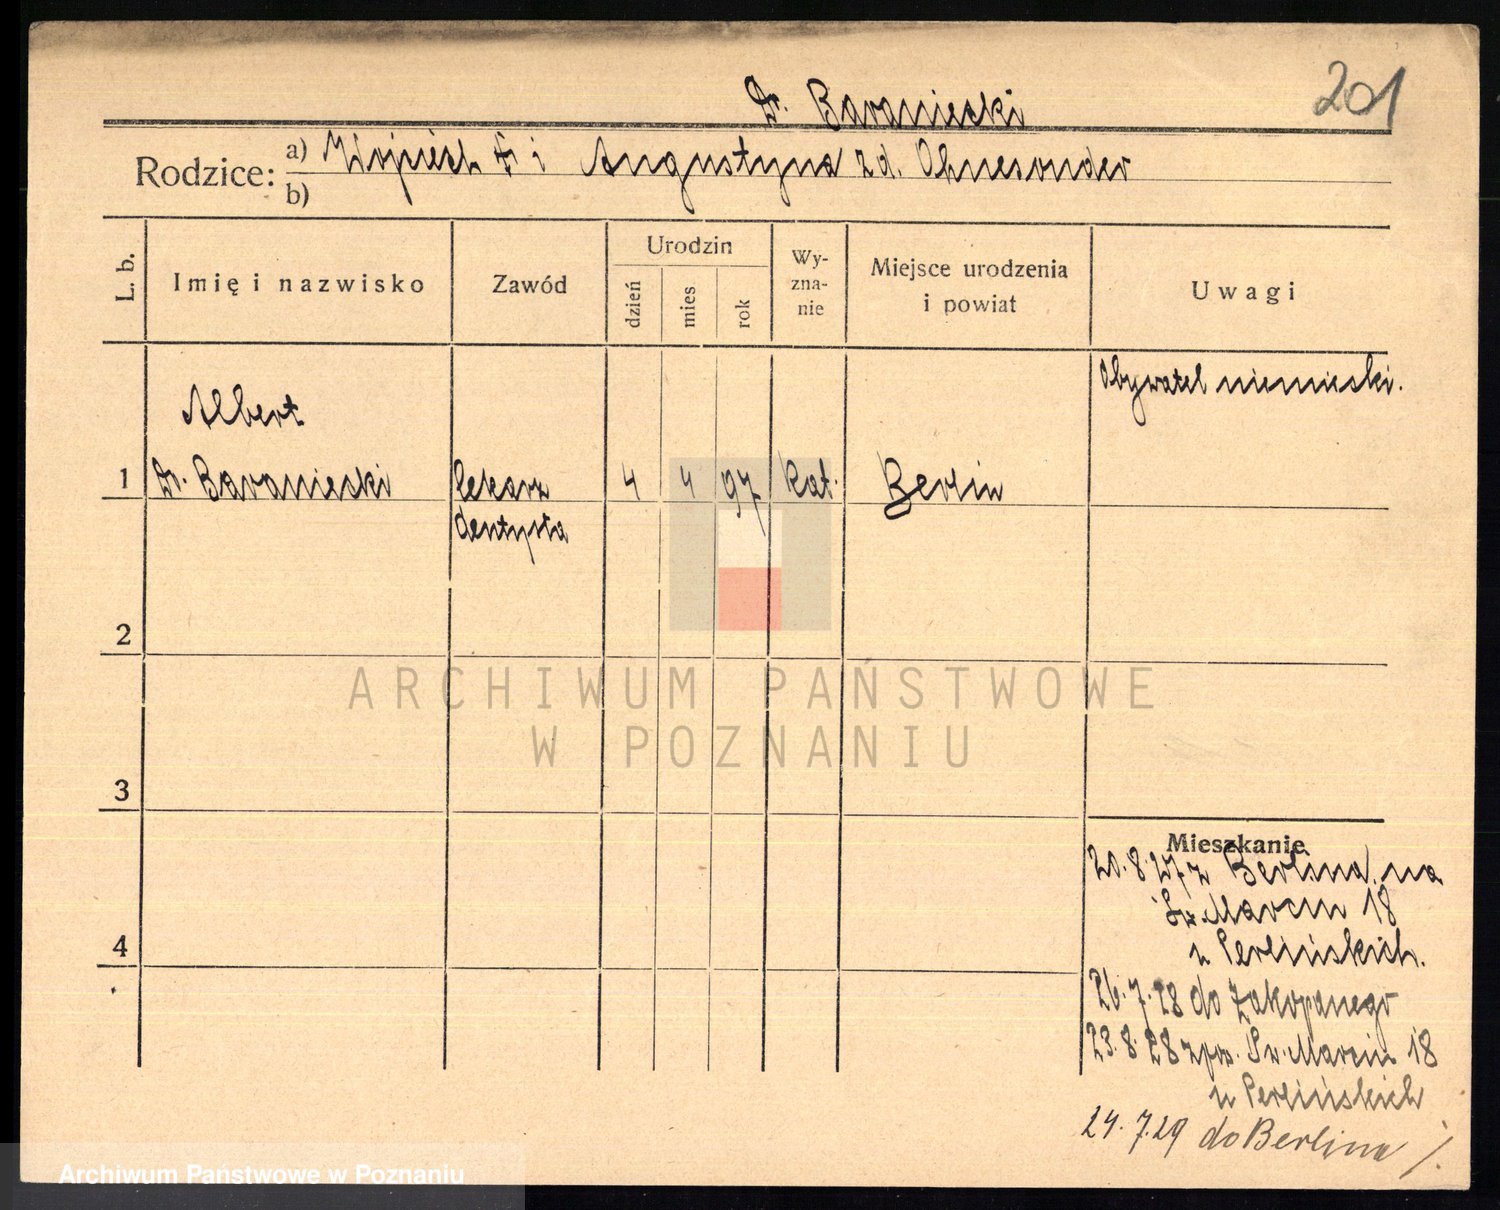 201
Dr. Baraniecki
Rodzice: a) Wojciech Dr i Augustyna zd. Ohnesonder
b)
L. b. Imię i nazwisko Zawód Urodzin dzień mies rok Wy-zna-nie Miejsce urodzenia i powiat Uwagi
Obywatel niemiecki.
Albert
1 Dr. Baraniecki lekarz 4 4 97 kat. Berlin
dentysta
2
ARCHIWUM PAŃSTWOWE
W POZNANIU
3
Mieszkanie
20.8.27 z Berlina na
Św. Marcin 18
u Perlińskich.
4
26.7.28 do Zakopanego
23.8.28 zpow. Św. Marcin 18
u Perlińskich
24.7.29 do Berlina /.
Archiwum Państwowe w Poznaniu